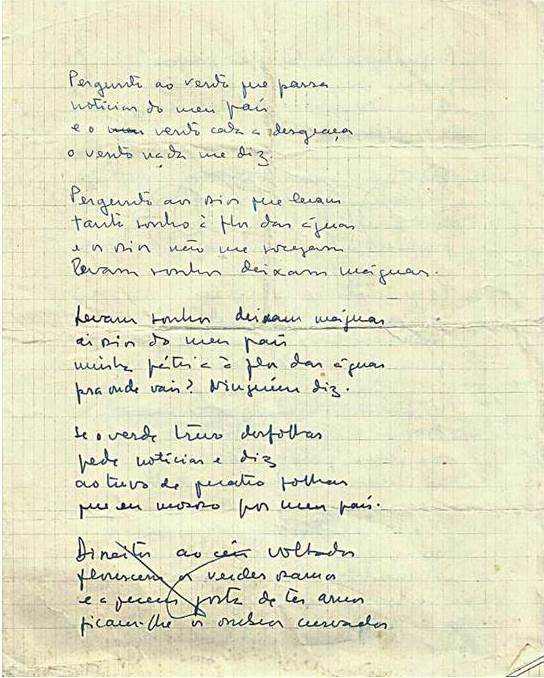 Pergunto ao vento que passa
notícias do meu país
e o meu vento cala a desgraça
o vento nada me diz.
Pergunto aos rios que levam
tanto sonho à flor das águas
e os rios não me sossegam
levam sonhos deixam máguas.
Levam sonhos deixam máguas
ai rios do meu país
minha pátria à flor das águas
pra onde vais? Ninguém diz.
Se o verde trevo desfolhas
pede notícias e diz
ao trevo de quatro folhas
que eu morro por meu país.
Direitos ao céu voltados
floresceram os verdes ramos
e a quem gosta de ter amos
ficam-lhe os ombros curvados